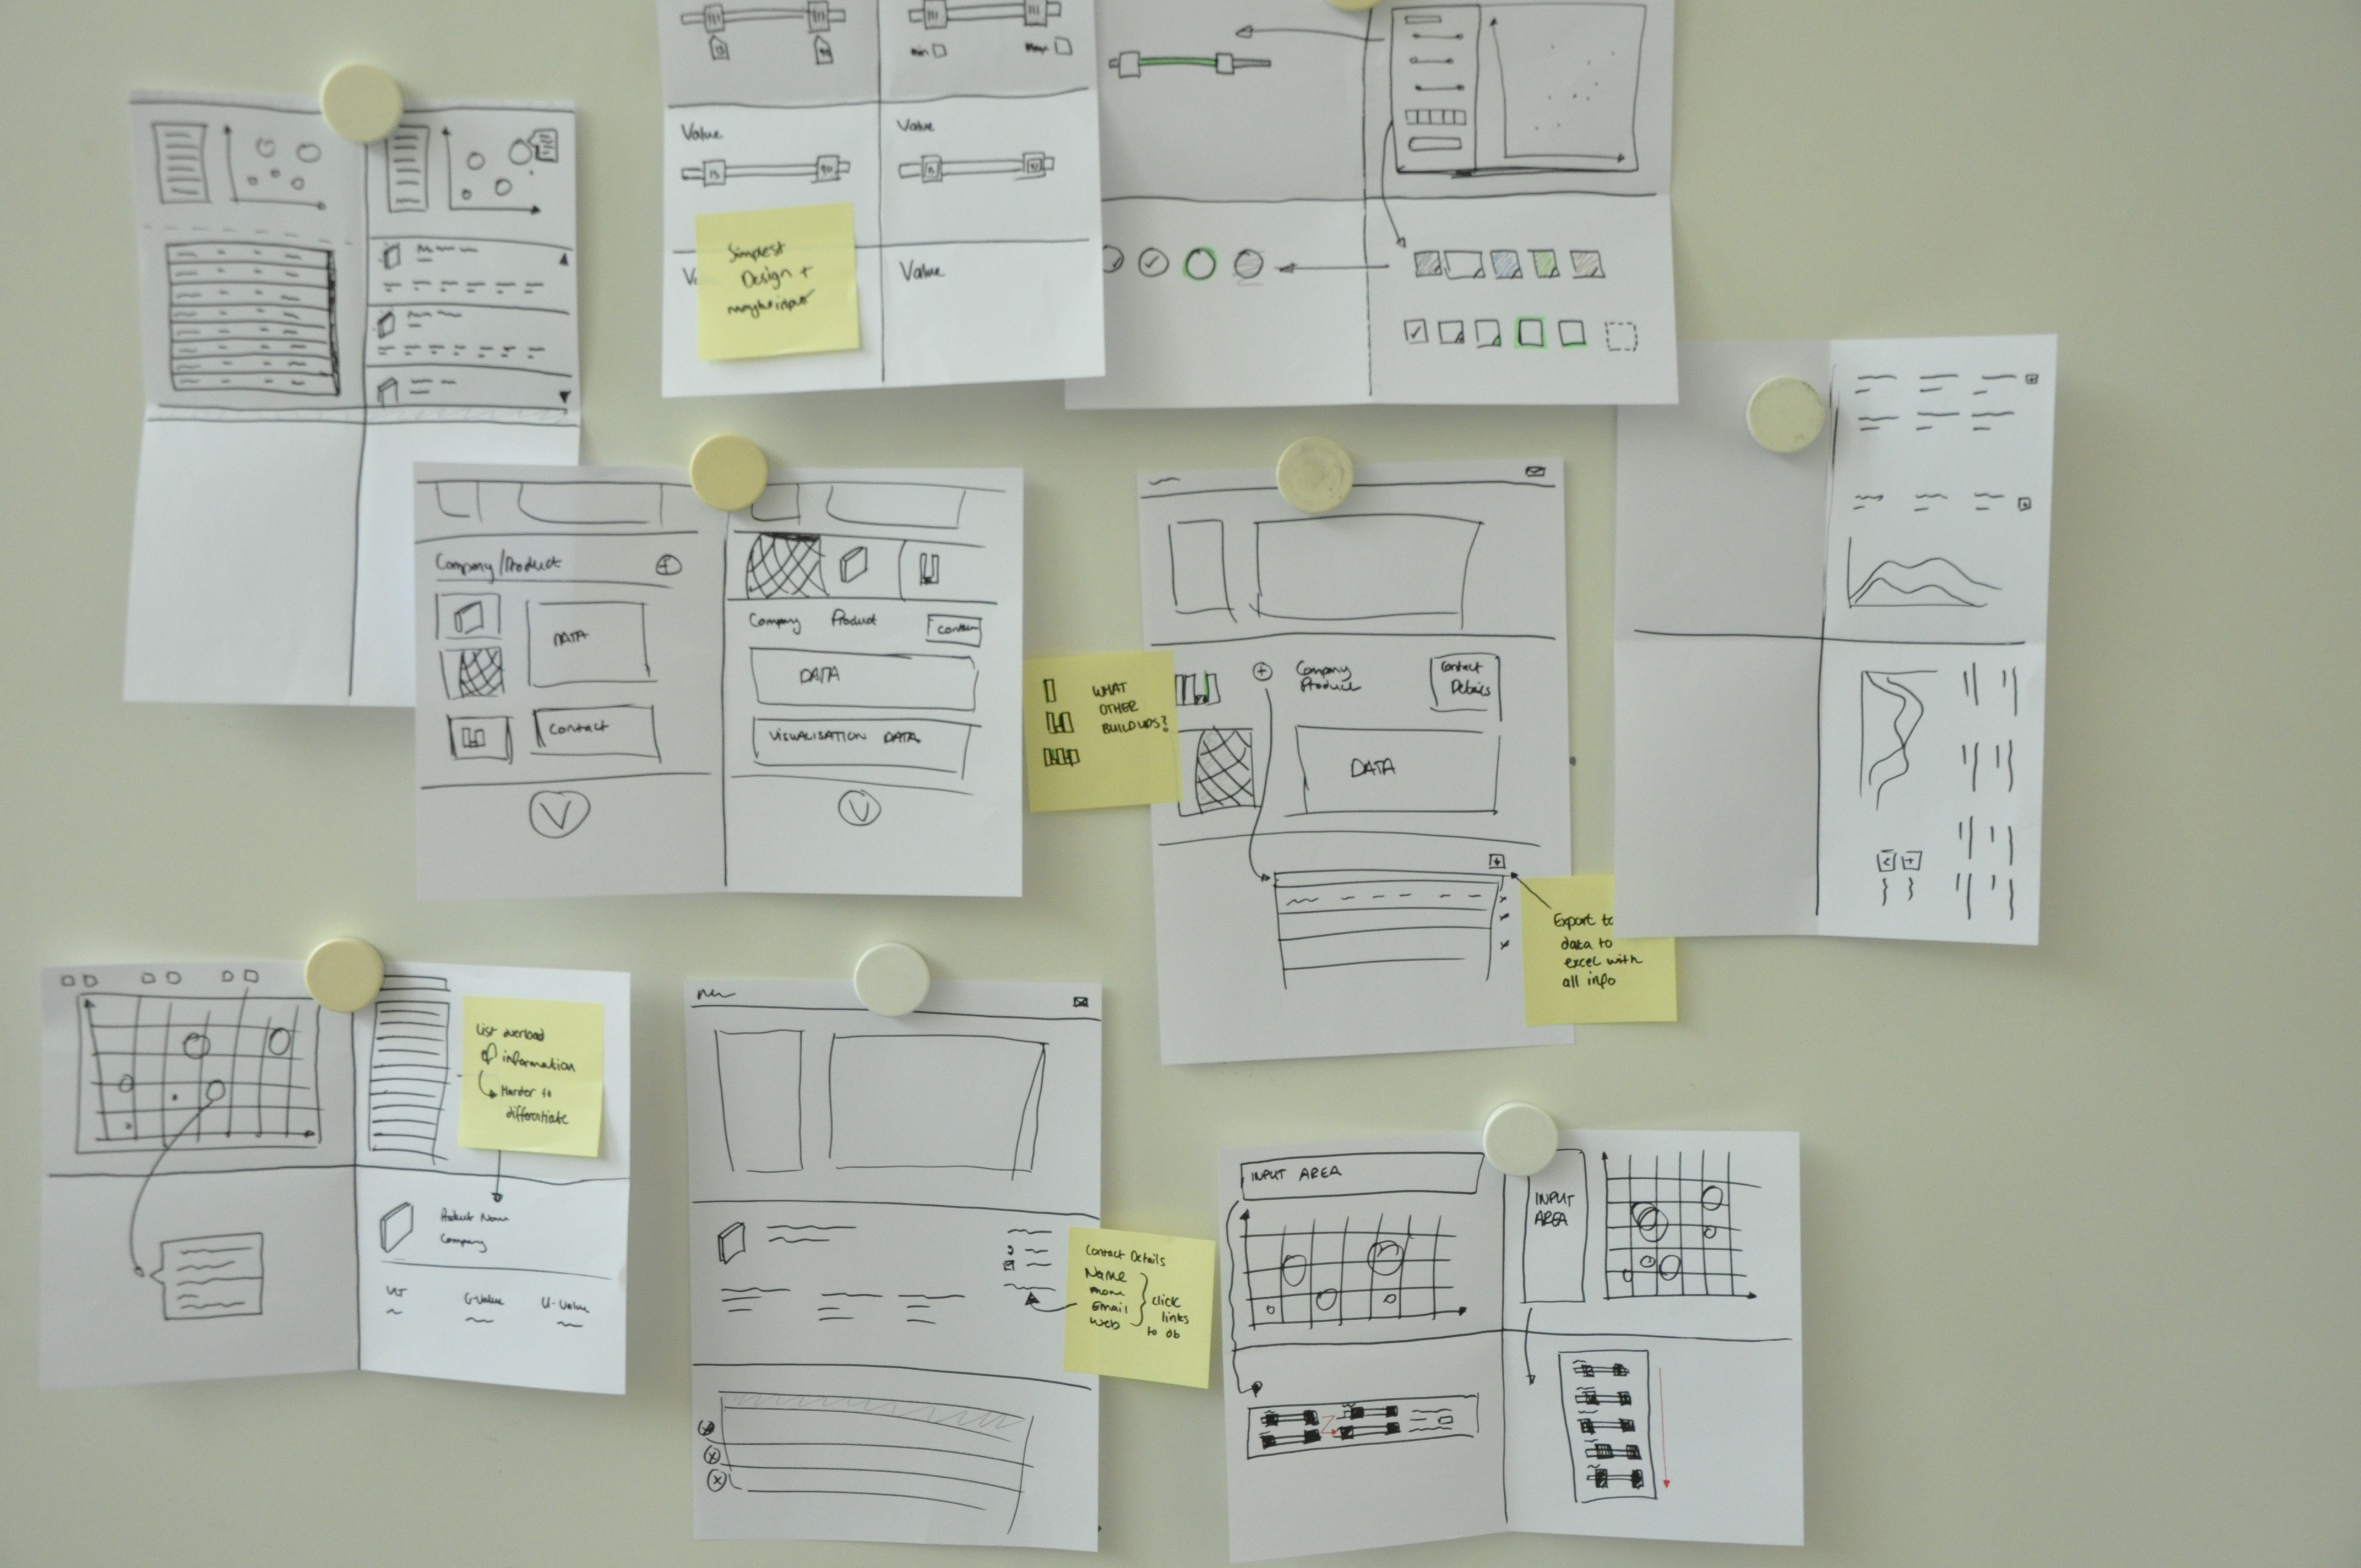 min
max
Value
Value
15
90
15
Simplest
Design +
maybe input
Value
Company/Product
DATA
Contact
Company Product
DATA
VISUALISATION DATA
WHAT
OTHER
BUILDUPS?
Company
Product
Contact
Details
DATA
Export to
data to
excel with
all info
List overload
of information
Harder to
differentiate
Product Name
Company
G-Value
U-Value
Contact Details
Name
Email
Web
click
links
to
INPUT AREA
INPUT
AREA